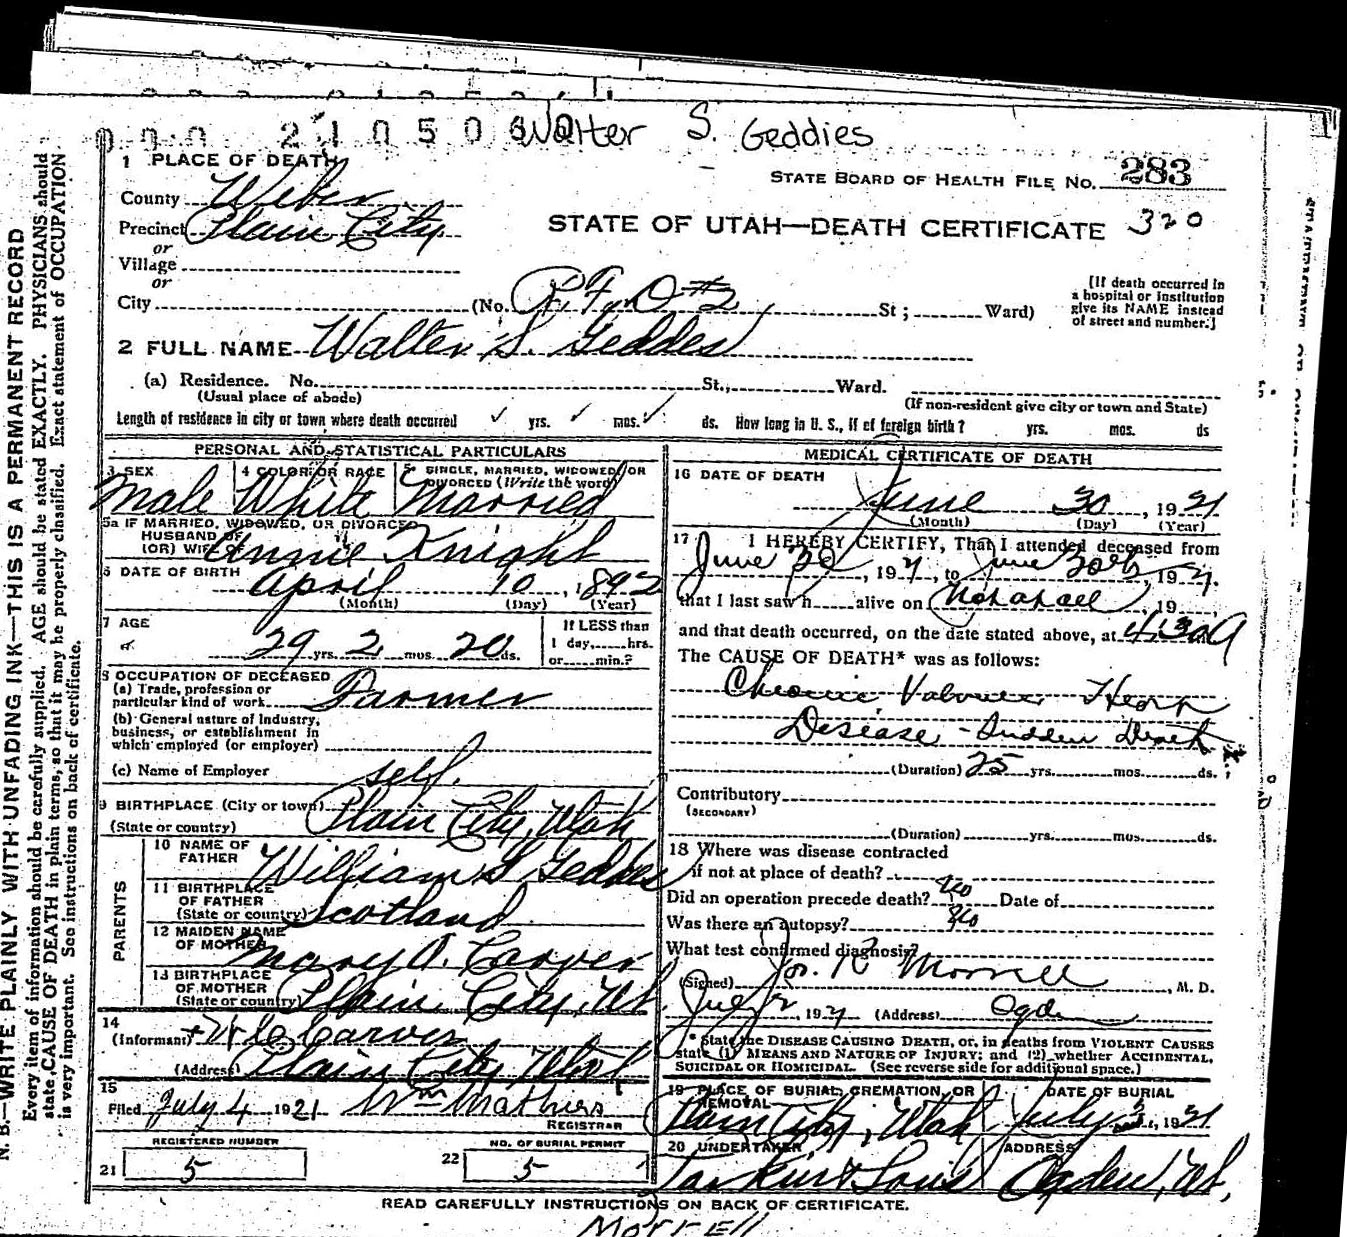 000 2105060 Walter S. Geddies
1 PLACE OF DEATH
County Weber
STATE BOARD OF HEALTH FILE NO. 283
Precinct Plain City
STATE OF UTAH—DEATH CERTIFICATE 320
or
Village
or
City (No. R.F.D #2 St ; Ward)
[If death occurred in a hospital or institution give its NAME instead of street and number.]
2 FULL NAME Walter S. Geddes
(a) Residence. No. St., Ward.
(Usual place of abode) (If non-resident give city or town and State)
Length of residence in city or town where death occurred yrs. mos. ds. How long in U. S., if of foreign birth? yrs. mos. ds
PERSONAL AND STATISTICAL PARTICULARS
3 SEX Male
4 COLOR OR RACE White
5 SINGLE, MARRIED, WIDOWED, OR DIVORCED (Write the word) Married
5a IF MARRIED, WIDOWED, OR DIVORCED
HUSBAND OF
(OR) WIFE OF Annie Knight
6 DATE OF BIRTH April 10, 1892
(Month) (Day) (Year)
7 AGE 29 yrs. 2 mos. 20 ds.
If LESS than
1 day, hrs.
or min.?
8 OCCUPATION OF DECEASED
(a) Trade, profession or
particular kind of work Farmer
(b) General nature of Industry,
business, or establishment in
which employed (or employer)
(c) Name of Employer self.
9 BIRTHPLACE (City or town)
(State or country) Plain City, Utah
PARENTS
10 NAME OF
FATHER William S Geddes
11 BIRTHPLACE
OF FATHER
(State or country) Scotland
12 MAIDEN NAME
OF MOTHER Mary A. Carver
13 BIRTHPLACE
OF MOTHER
(State or country) Plain City, Ut.
14
(Informant) Carver
(Address) Plain City Utah
15
Filed July 4 1921 Wm Mathers
REGISTRAR
REGISTERED NUMBER
21 5
NO. OF BURIAL PERMIT
22 5
MEDICAL CERTIFICATE OF DEATH
16 DATE OF DEATH
June 30, 1921
(Month) (Day) (Year)
17 I HEREBY CERTIFY, That I attended deceased from
June 30, 1921, to June 30th, 1921.
that I last saw h alive on Not at all, 19
and that death occurred, on the date stated above, at 4:30A
The CAUSE OF DEATH* was as follows:
Chronic Valvular Heart
Disease - Sudden Death
(Duration) 25 yrs. mos. ds.
Contributory
(SECONDARY)
(Duration) yrs. mos. ds.
18 Where was disease contracted
if not at place of death?
Did an operation precede death? No Date of
Was there an autopsy? No
What test confirmed diagnosis?
(Signed) Jos. R Morrell, M. D.
July 2, 1921 (Address) Ogden
* State the DISEASE CAUSING DEATH, or, in deaths from VIOLENT CAUSES
state (1) MEANS AND NATURE OF INJURY; and (2) whether ACCIDENTAL,
SUICIDAL OR HOMICIDAL. (See reverse side for additional space.)
19 PLACE OF BURIAL, CREMATION, OR
REMOVAL
Plain City, Utah
DATE OF BURIAL
July 3, 1921
20 UNDERTAKER
Larkin & Sons
ADDRESS
Ogden, Ut.
READ CAREFULLY INSTRUCTIONS ON BACK OF CERTIFICATE.
Morrell
N. B.—WRITE PLAINLY WITH UNFADING INK—THIS IS A PERMANENT RECORD
Every item of information should be carefully supplied. AGE should be stated EXACTLY. PHYSICIANS should
state CAUSE OF DEATH in plain terms, so that it may be properly classified. Exact statement of OCCUPATION
is very important. See instructions on back of certificate.